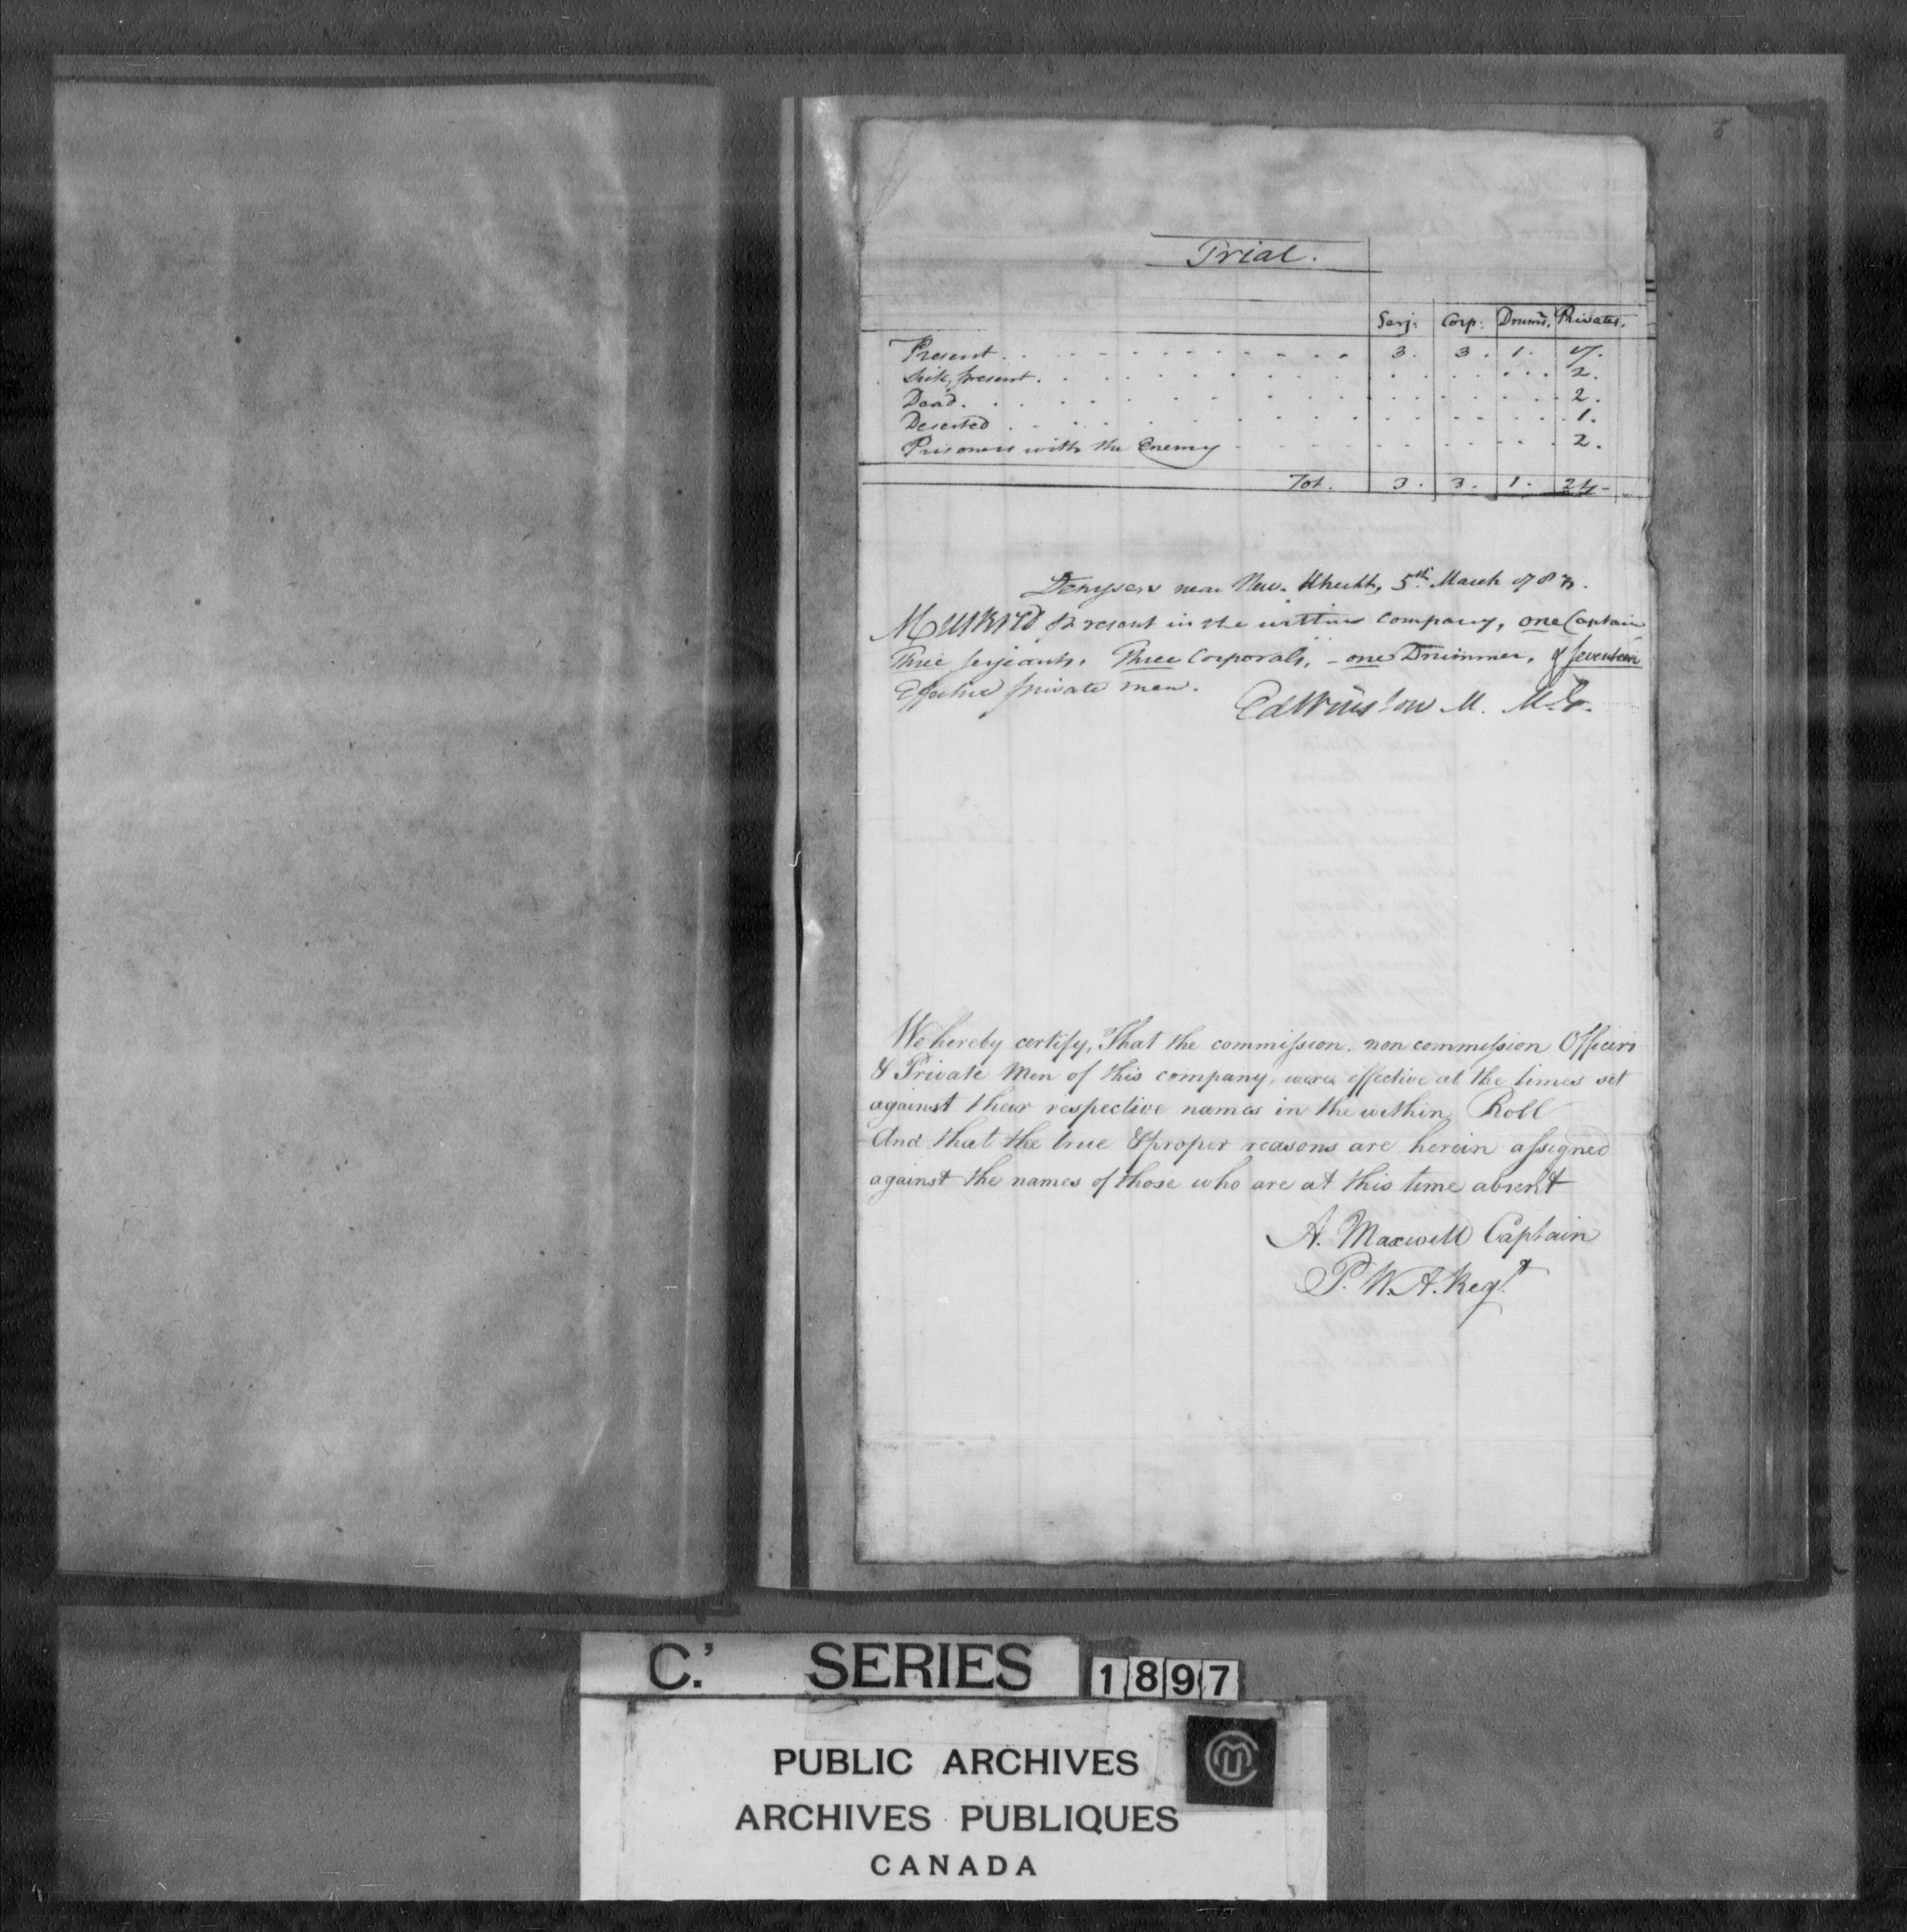 8
Trial.
Serj: Corp: Drumrs. Privates.
Present 3. 3. 1. 17.
Sick, present. 2.
Dead. 2.
Deserted 1.
Prisoners with the Enemy 2.
Tot. 3. 3. 1. 24
Denyses near New. Utrecht, 5th March 1783.
Mustered present in the within company, one Captain
Three Serjeants, Three Corporals, - one Drummer, & Seventeen
Effective private men.
Ed Winslow M. M. G.
We hereby certify, That the commission, non commission Officers
& Private Men of this company, were effective at the times set
against their respective names in the within Roll
And that the true & proper reasons are herein assigned
against the names of those who are at this time absent
A. Maxwell Captain
P. W. A. Regt
C.' SERIES 1897
PUBLIC ARCHIVES
ARCHIVES PUBLIQUES
CANADA